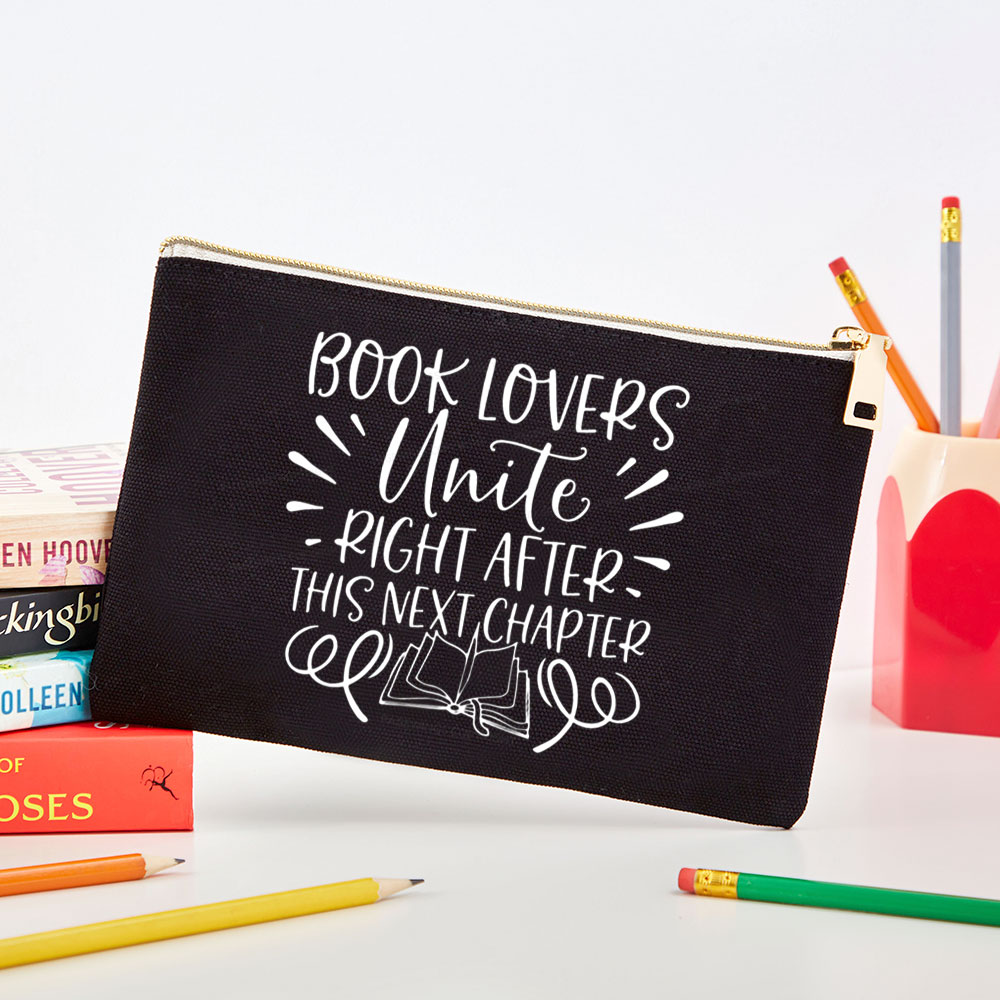 BOOK LOVERS
Unite
RIGHT AFTER
THIS NEXT CHAPTER
EN HOOV
ckingbi
OLLEEN
OF
OSES